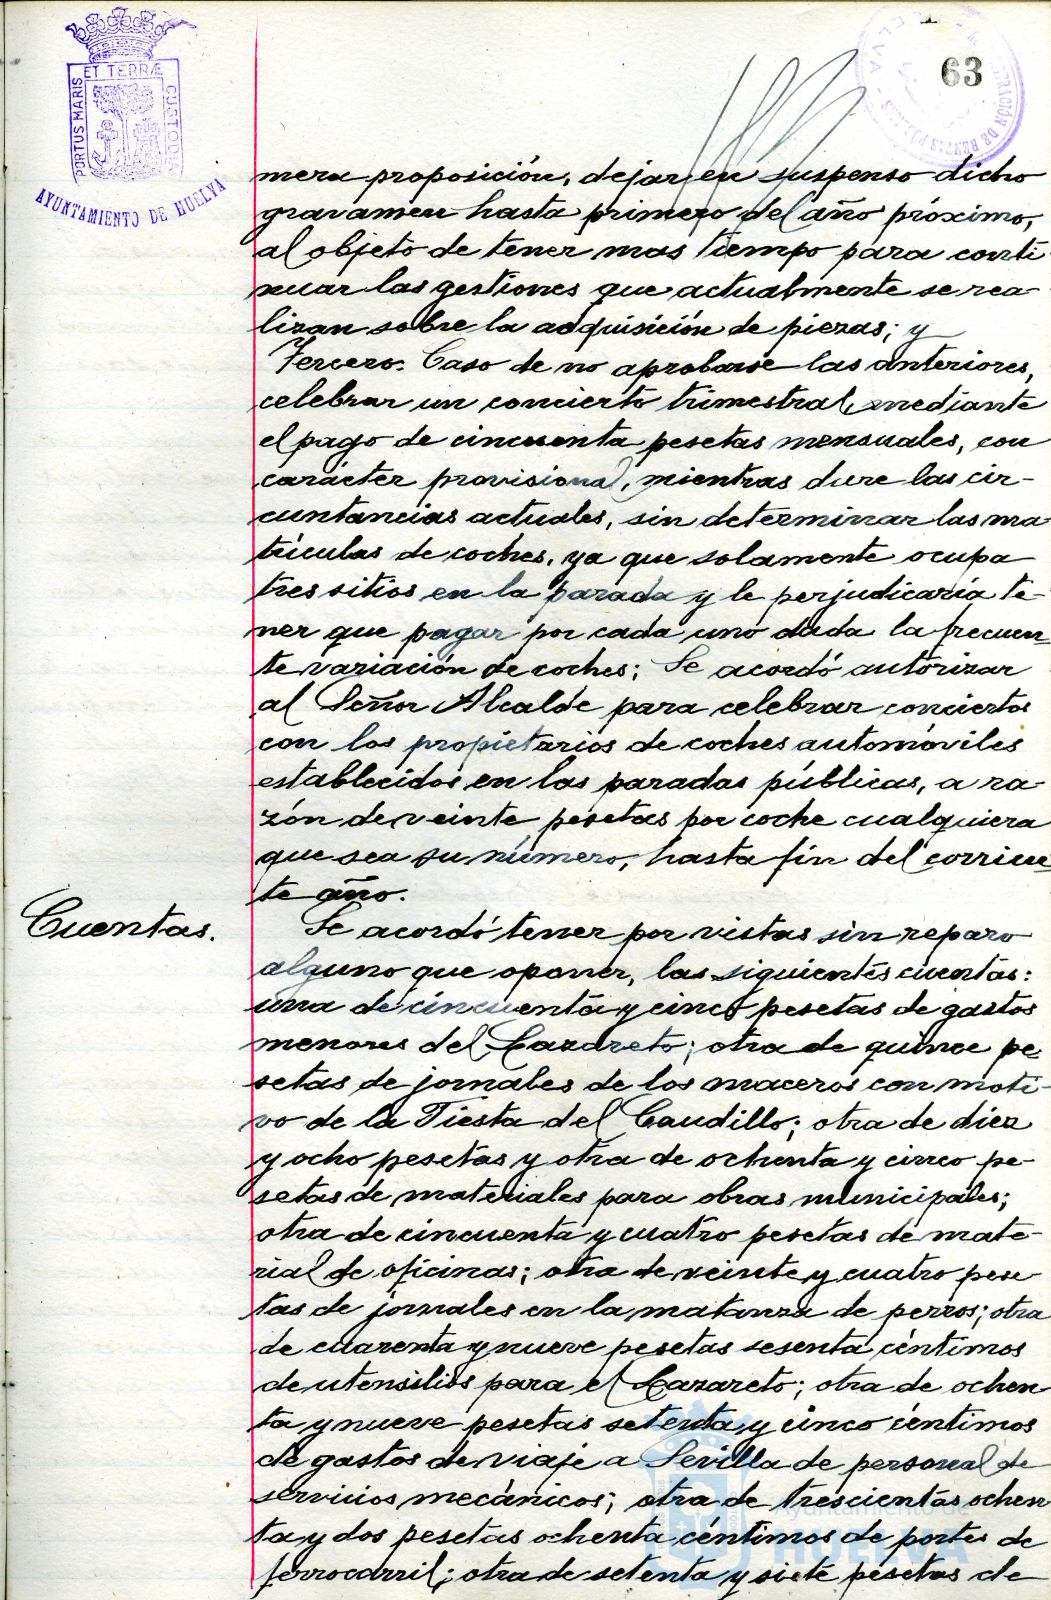 63
ET TERRÆ
PORTUS MARIS
CUSTODIA
AYUNTAMIENTO DE HUELVA
mera proposición, dejar en suspenso dicho
gravamen hasta primero del año próximo,
al objeto de tener mas tiempo para conti-
nuar las gestiones que actualmente se rea-
lizan sobre la adquisición de piezas; y
Tercero. Caso de no aprobarse las anteriores,
celebrar un concierto trimestral, mediante
el pago de cincuenta pesetas mensuales, con
carácter provisional, mientras dure las cir-
cuntancias actuales, sin determinar las ma
trículas de coches, ya que solamente ocupa
tres sitios en la parada y le perjudicaría te-
ner que pagar por cada uno dada la frecuen-
te variación de coches; Se acordó autorizar
al Señor Alcalde para celebrar conciertos
con los propietarios de coches automóviles
establecidos en las paradas públicas, a ra-
zón de veinte pesetas por coche cualquiera
que sea su número, hasta fin del corrien-
te año.
Cuentas.
Se acordó tener por vistas sin reparo
alguno que oponer, las siguientes cuentas:
una de cincuenta y cinco pesetas de gastos
menores del Lazareto; otra de quince pe-
setas de jornales de los maceros con moti-
vo de la Fiesta del Caudillo; otra de diez
y ocho pesetas y otra de ochenta y cinco pe-
setas de materiales para obras municipales;
otra de cincuenta y cuatro pesetas de mate-
rial de oficinas; otra de veinte y cuatro pese-
tas de jornales en la matanza de perros; otra
de cuarenta y nueve pesetas sesenta céntimos
de utensilios para el Lazareto; otra de ochen-
ta y nueve pesetas setenta y cinco céntimos
de gastos de viaje a Sevilla de personal de
servicios mecánicos; otra de trescientas ochen
ta y dos pesetas ochenta céntimos de portes de
ferrocarril; otra de setenta y siete pesetas de
Ayuntamiento de
HUELVA